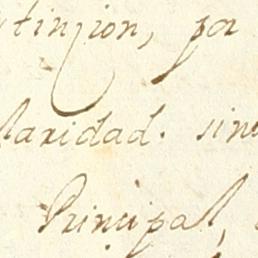 tinzion, por
laridad. sino
Principal,